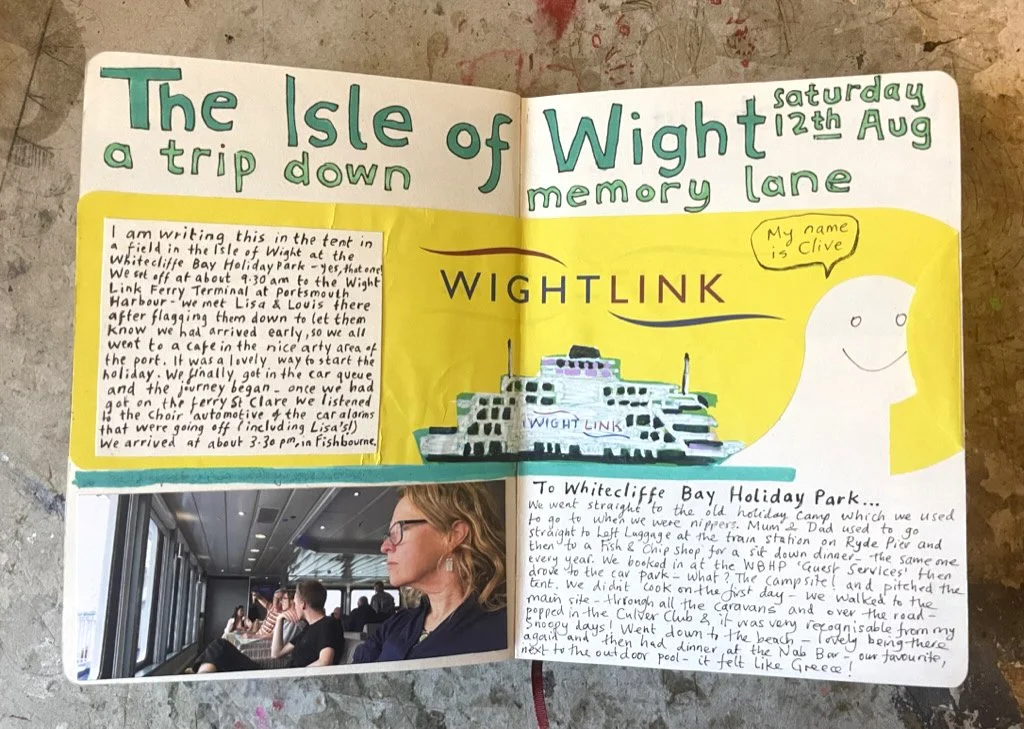 The Isle of Wight
saturday
12th Aug
a trip down memory lane
I am writing this in the tent in
a field in the Isle of Wight at the
Whitecliffe Bay Holiday Park - yes, that one!
We set off at about 9.30 am to the Wight
Link Ferry Terminal at Portsmouth
Harbour - we met Lisa & Louis there
after flagging them down to let them
know we had arrived early, so we all
went to a cafe in the nice arty area of
the port. It was a lovely way to start the
holiday. We finally got in the car queue
and the journey began - once we had
got on the ferry St Clare we listened
to the choir 'automotive' of the car alarms
that were going off (including Lisa's!)
We arrived at about 3.30 pm, in Fishbourne.
WIGHTLINK
My name
is Clive
WIGHT LINK
To Whitecliffe Bay Holiday Park...
We went straight to the old holiday camp which we used
to go to when we were nippers. Mum & Dad used to go
straight to Left Luggage at the train station on Ryde Pier and
then to a Fish & Chip shop for a sit down dinner - the same one
every year. We booked in at the WBHP 'Guest Services' then
drove to the car park - what? The campsite! and pitched the
tent. We didn't cook on the first day - we walked to the
main site - through all the caravans and over the road -
popped in the Culver Club & it was very recognisable from my
Snoopy days! Went down to the beach - lovely being there
again and then had dinner at the Nab Bar - our favourite,
next to the outdoor pool - it felt like Greece!